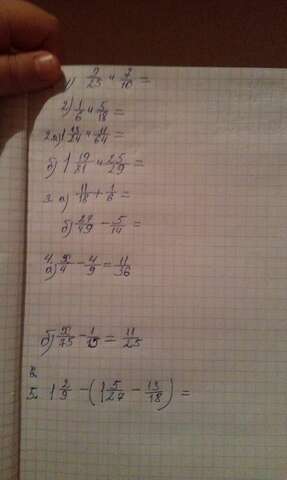 1) 9/25 и 7/10 =
2) 1/6 и 5/18 =
2. а) 1 13/24 и 11/64 =
б) 1 19/21 и 25/29 =
3. а) 11/18 + 1/6 =
б) 27/49 - 5/14 =
4. а) x/4 - 4/9 = 11/36
б) x/75 - 1/15 = 11/25
5. 1 2/9 - (1 5/27 - 13/18) =